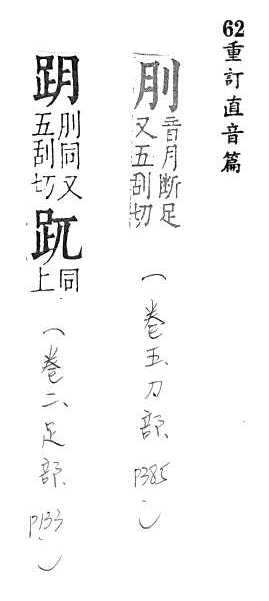 62重訂直音篇
刖 音月断足
又五刮切
(卷五、刀部、P385)
跀 刖同又
五刮切
同
上
(卷二、足部、P133)